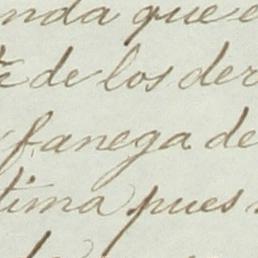 nda que e
de los der
fanega de
tima pues